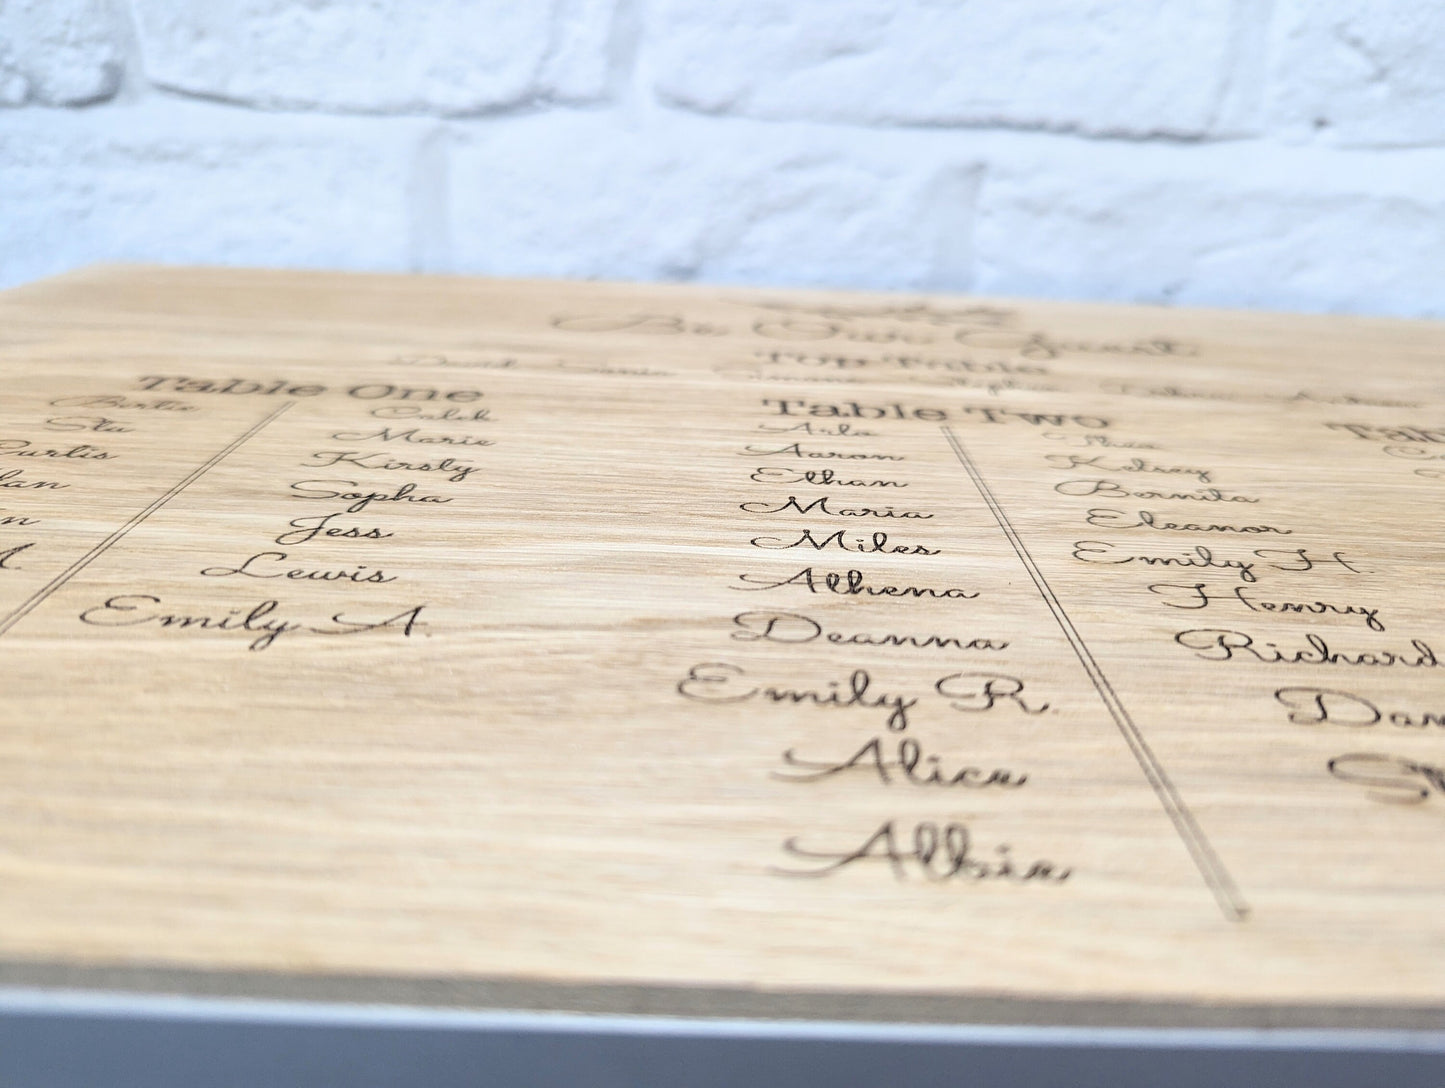 Be Our Guest
Top Table
David
Simone
Table One
Bertie
Stu
Curtis
Caleb
Marie
Kirsty
Sopha
Jess
Lewis
Emily A.
Table Two
Arlo
Aaron
Ethan
Maria
Miles
Athena
Deanna
Emily R.
Alice
Albie
Thea
Kelsey
Bernita
Eleanor
Emily H.
Henry
Richard